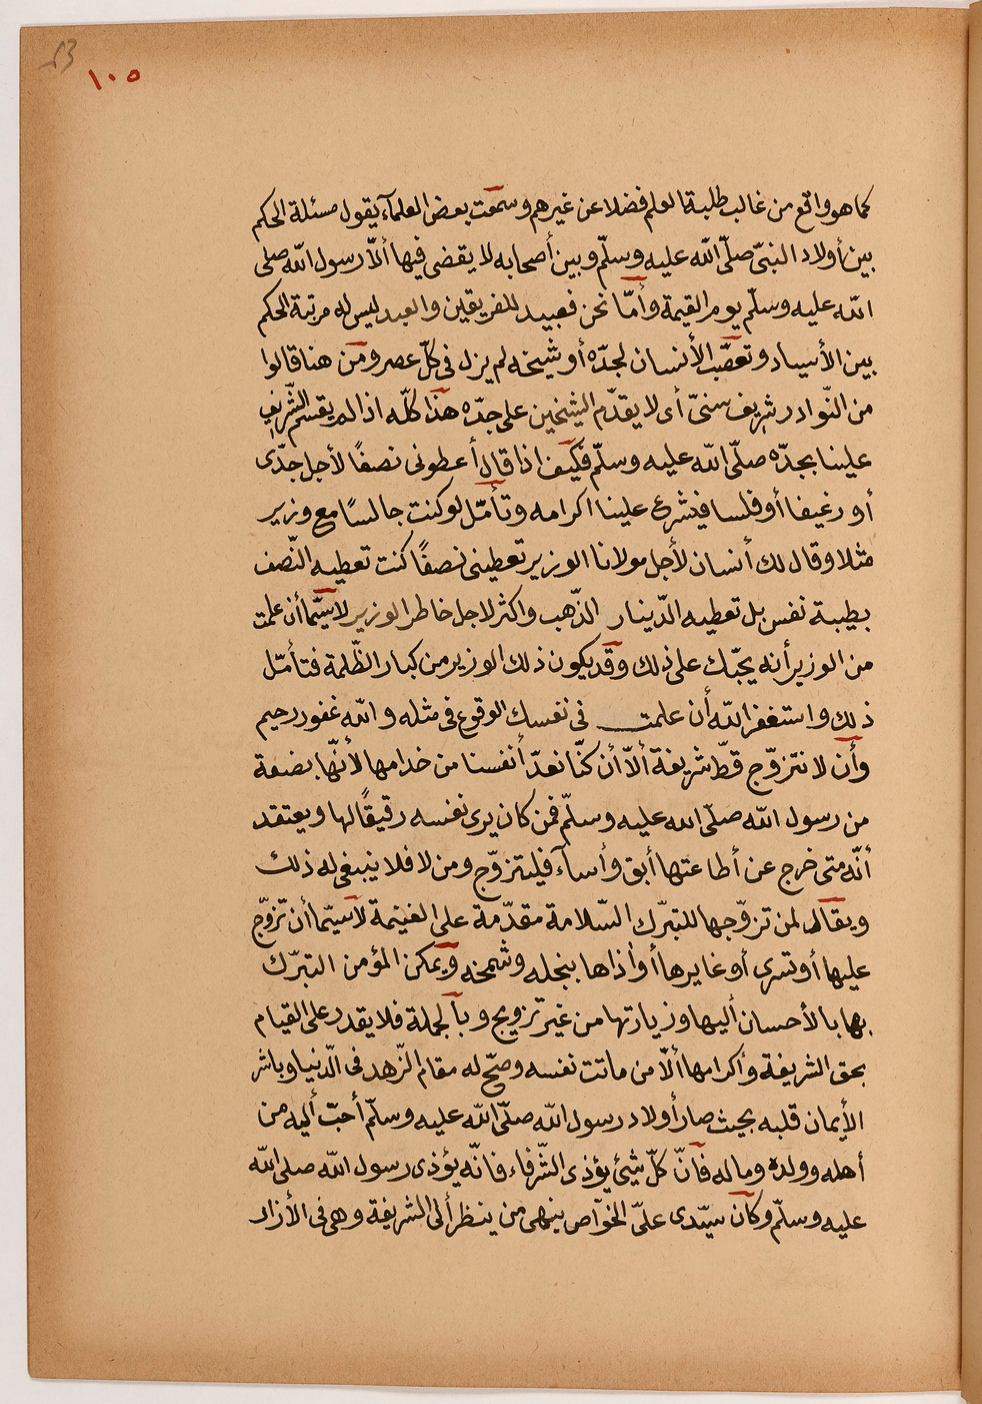 53
١٠٥
كما هو واقع من غالب طلبة العلم فضلا عن غيرهم وسمعت بعض العلمآء يقول مسئلة الحكم
بين أولاد النبىّ صلّى اللّه عليه وسلّم وبين أصحابه لا يقضى فيها ألّا رسول اللّه صلى
اللّه عليه وسلّم يوم القيمة وأمّا نحن فعبيد للفريقين والعبد ليس له مرتبة الحكم
بين الأسياد وتعصّب الأنسان لجدّه أو شيخه لم يزل فى كلّ عصر ومن هنا قالوا
من النّوادر شريف سنىّ أى لا يقدّم الشيخين على جدّه هذا كلّه اذا لم يقسم الشّريف
علينا بجدّه صلّى اللّه عليه وسلّم فكيف اذا قال أعطونى نصفًا لأجل جدّى
أو رغيفا أو فلسا فيشرع علينا اكرامه وتأمّل لو كنت جالسًا مع وزير
مثلا وقال لك أنسان لأجل مولانا الوزير تعطينى نصفًا كنت تعطيه النّصف
بطيبة نفس بل تعطيه الدّينار الذّهب واكثر لاجل خاطر الوزير لاسيّما أن علمت
من الوزير أنه يحبّك على ذلك وقد يكون ذلك الوزير من كبار الظّلمة فتأمّل
ذلك واستغفر اللّه أن علمت فى نفسك الوقوع فى مثله واللّه غفور رحيم
وأن لا نتزوّج قطّ شريفة ألّا أن كنّا نعدّ أنفسنا من خدامها لأنّها بضعة
من رسول اللّه صلّى الله عليه وسلّم فمن كان يرى نفسه رقيقًا لها ويعتقد
أنّه متى خرج عن أطاعتها أبق وأسآء فليتزوّج ومن لا فلا ينبغى له ذلك
ويقال لمن تزوّجها للتبرّك السّلامة مقدّمة على الغنيمة لاسيّما أن تزوّج
عليها أو تسرى أو غايرها أو اذاها ببخله وشمخه ويمكن المؤمن التبرّك
بها بالأحسان أليها وزيارتها من غير تزويج وبالجملة فلا يقدر على القيام
بحق الشريفة وأكرامها ألّا من ماتت نفسه وصحّ له مقام الزّهد فى الدّنيا وباشر
الأيمان قلبه بحيث صار أولاد رسول اللّه صلّى اللّه عليه وسلّم أحبّ أليه من
أهله وولده وماله فأنّ كلّ شيئ يؤذى الشّرفاء فانّه يؤذى رسول اللّه صلى اللّه
عليه وسلّم وكان سيّدى علىّ الخوّاص ينهى من ينظر ألى الشريفة وهى فى الأزار